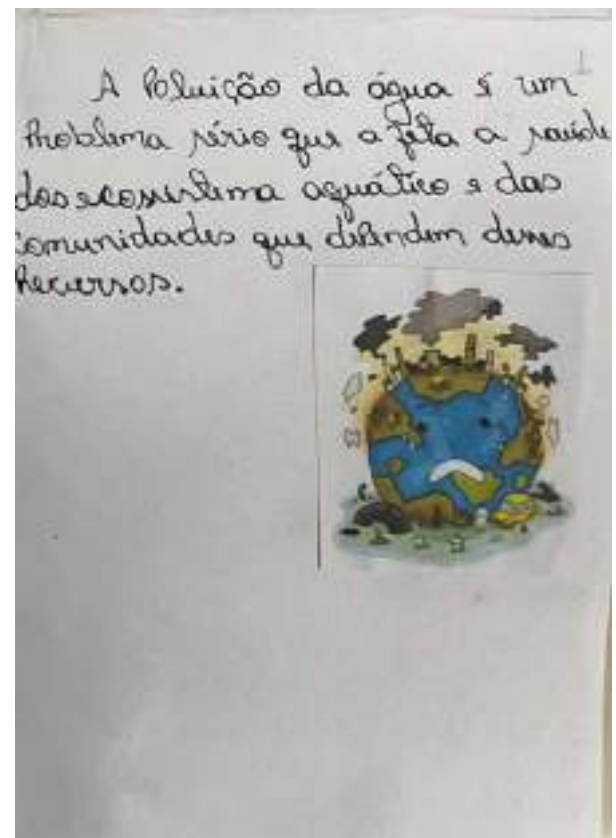 A Poluição da água é um
Problema sério que a feta a saúde
dos ecossistema aquático e das
comunidades que dependem desses
Recursos.